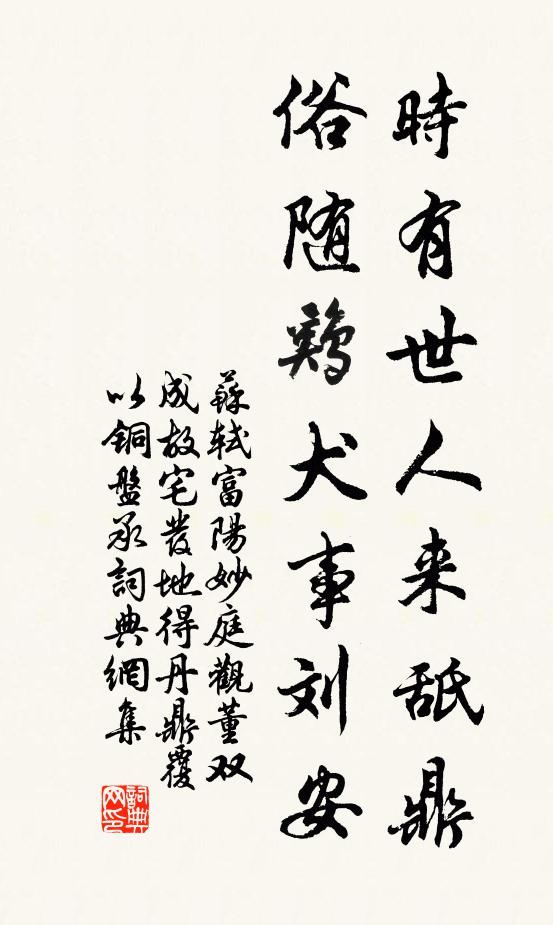 時有世人来舐鼎
俗随鷄犬事刘安
蘇軾富陽妙庭觀董双
成故宅發地得丹鼎覆
以銅盤承詞典網集
詞典网印